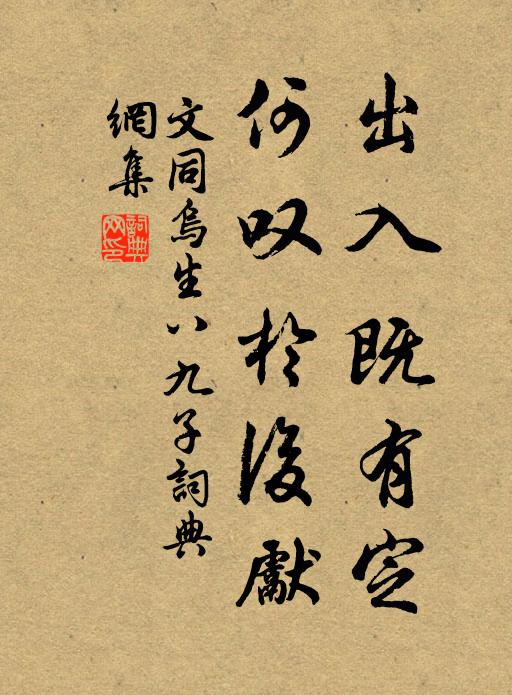 出入既有定
何叹於後獻
文同烏生八九子詞典
網集
詞典
网印